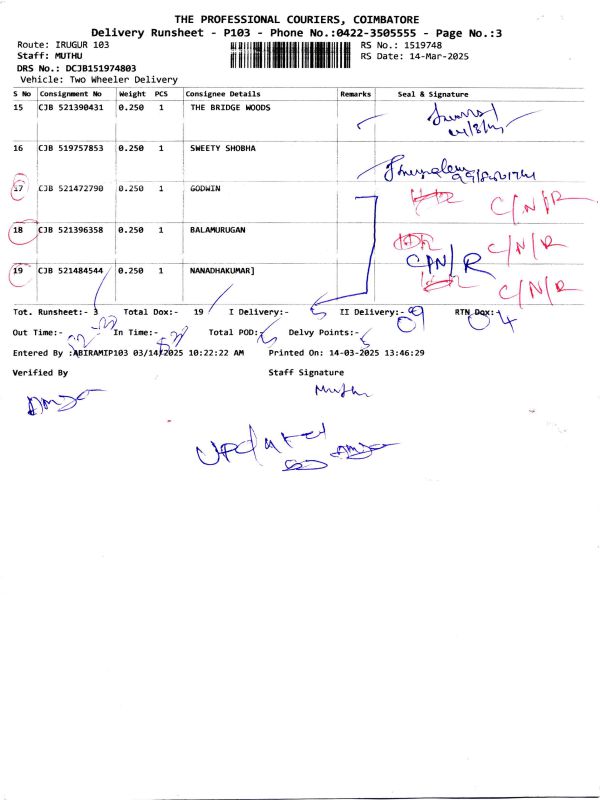 THE PROFESSIONAL COURIERS, COIMBATORE
Delivery Runsheet - P103 - Phone No.:0422-3505555 - Page No.:3
Route: IRUGUR 103 RS No.: 1519748
Staff: MUTHU RS Date: 14-Mar-2025
DRS No.: DCJB151974803
Vehicle: Two Wheeler Delivery
S No Consignment No Weight PCS Consignee Details Remarks Seal & Signature
15 CJB 521390431 0.250 1 THE BRIDGE WOODS
16 CJB 519757853 0.250 1 SWEETY SHOBHA
17 CJB 521472790 0.250 1 GODWIN C/N/R
18 CJB 521396358 0.250 1 BALAMURUGAN C/N/R
CPN/R
19 CJB 521484544 0.250 1 NANADHAKUMAR] C/N/R
Tot. Runsheet:- 3 Total Dox:- 19 I Delivery:- II Delivery:- 09 RTN Dox:- 04
Out Time:- In Time:- Total POD:- Delvy Points:-
Entered By :ABIRAMIP103 03/14/2025 10:22:22 AM Printed On: 14-03-2025 13:46:29
Verified By Staff Signature
Muthu
Updated